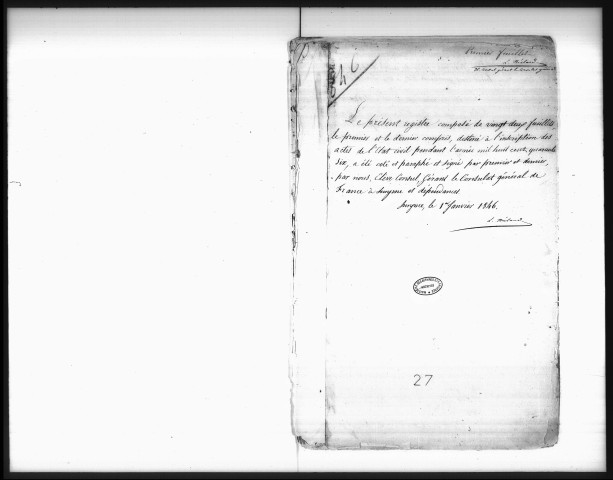 1846
Premier feuillet
Le présent registre composé de vingt deux feuillets
le premier et le dernier compris, destiné à l'inscription des
actes de l'Etat civil pendant l'année mil huit cent quarante
six, a été coté et paraphé et signé par premier et dernier,
par nous, Elève Consul, Gérant le Consulat général de
France à Smyrne et dépendances
Smyrne, le 1er Janvier 1846.
27